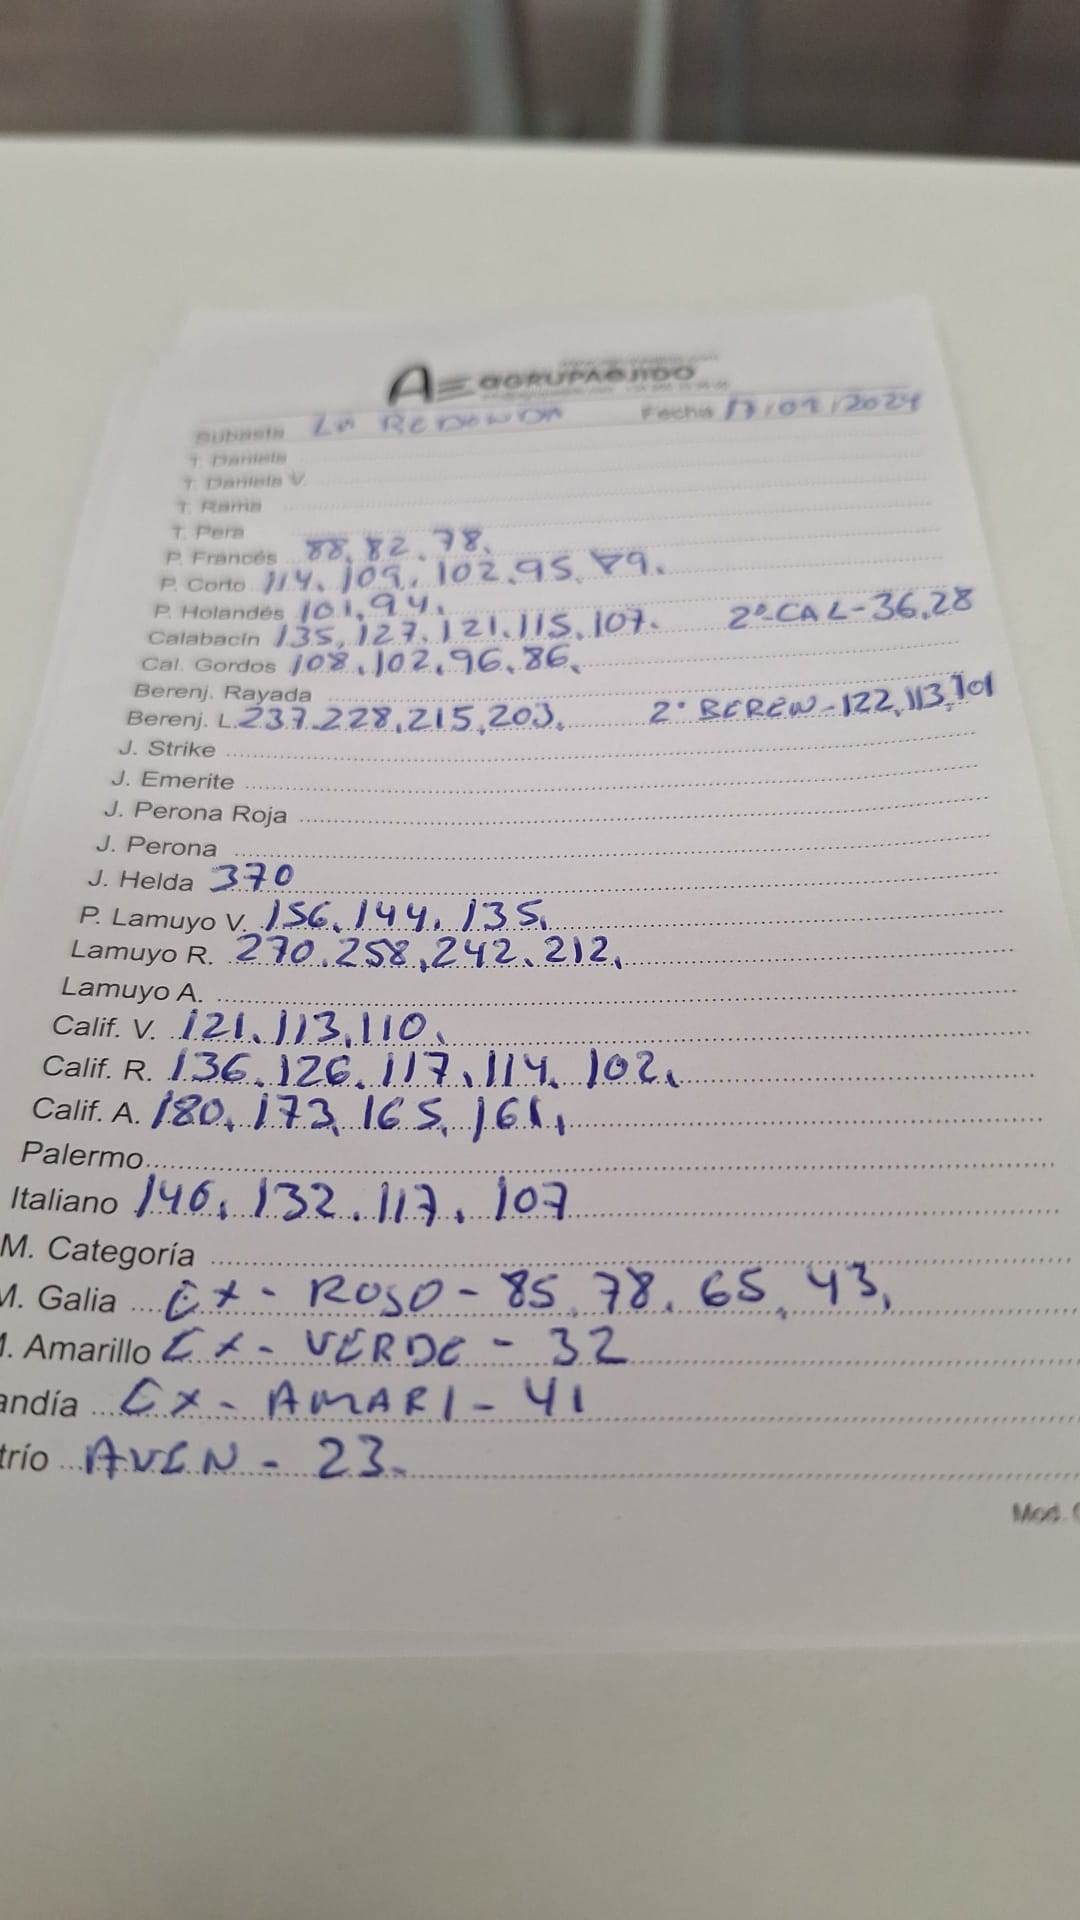 AE AGRUPAEJIDO
Subasta LA REDONDA Fecha 17/01/2024
T. Daniela
T. Daniela V.
T. Rama
T. Pera
P. Francés 88, 82, 78,
P. Corto 114, 109, 102, 95, 89,
P. Holandés 101, 94,
Calabacín 135, 127, 121, 115, 107. 2º-CAL-36,28
Cal. Gordos 108, 102, 96, 86,
Berenj. Rayada
Berenj. L. 237, 228, 215, 203, 2º BEREN-122, 113, 101
J. Strike
J. Emerite
J. Perona Roja
J. Perona
J. Helda 370
P. Lamuyo V. 156, 144, 135,
Lamuyo R. 270, 258, 242, 212,
Lamuyo A.
Calif. V. 121, 113, 110,
Calif. R. 136, 126, 117, 114, 102,
Calif. A. 180, 173, 165, 161,
Palermo
Italiano 146, 132, 117, 107
M. Categoría
M. Galia EX - ROJO - 85, 78, 65, 43,
M. Amarillo EX - VERDE - 32
andía EX - AMARI - 41
trío AVEN - 23.
Mod.